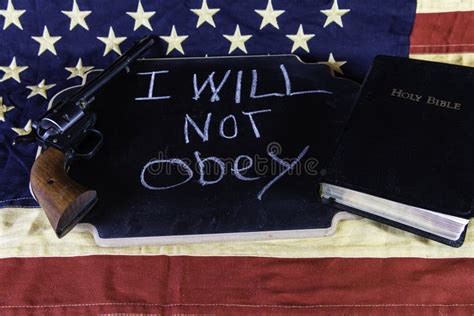 I WILL
NOT
Obey
HOLY BIBLE
dreamstime